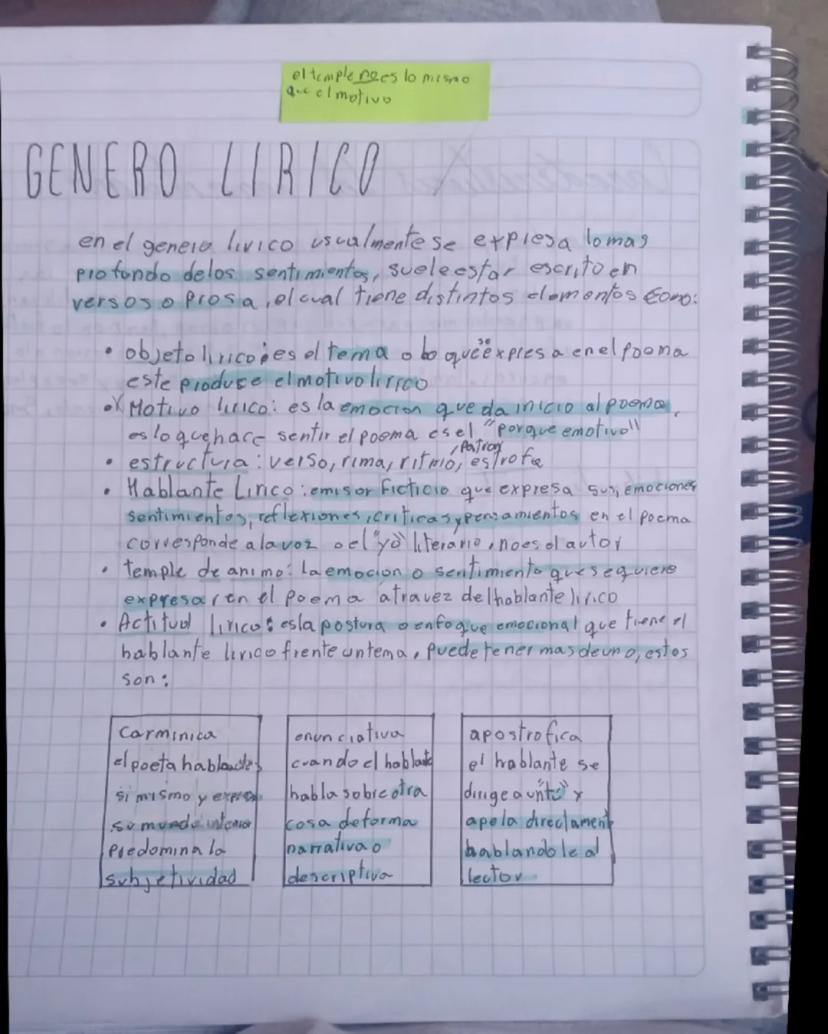 el temple no es lo mismo
que el motivo
GENERO LIRICO
en el genero lirico usualmente se expresa lo mas
profundo de los sentimientos, suele estar escrito en
versos o prosa, el cual tiene distintos elementos como:
• objeto lirico: es el tema o lo que se expresa en el poema
este produce el motivo lirico
• Motivo lirico: es la emocion que da inicio al poema,
es lo que hace sentir el poema es el "porque emotivo"
• estructura: verso, rima, ritmo, patron, estrofa
• Hablante Lirico: emisor ficticio que expresa sus emociones
sentimientos, reflexiones, criticas y pensamientos en el poema
corresponde a la voz o el "yo" literario, no es el autor
• temple de animo: la emocion o sentimiento que se quiere
expresar en el poema atravez del hablante lirico
• Actitud lirico: es la postura o enfoque emocional que tiene el
hablante lirico frente un tema, puede tener mas de uno, estos
son:
Carminica
el poeta habla de
si mismo y expresa
su mundo interior
Predomina la
subjetividad
enunciativa
cuando el hablante
habla sobre otra
cosa de forma
narrativa o
descriptiva
apostrofica
el hablante se
dirige a un "tú" y
apela directament
hablandole al
lector